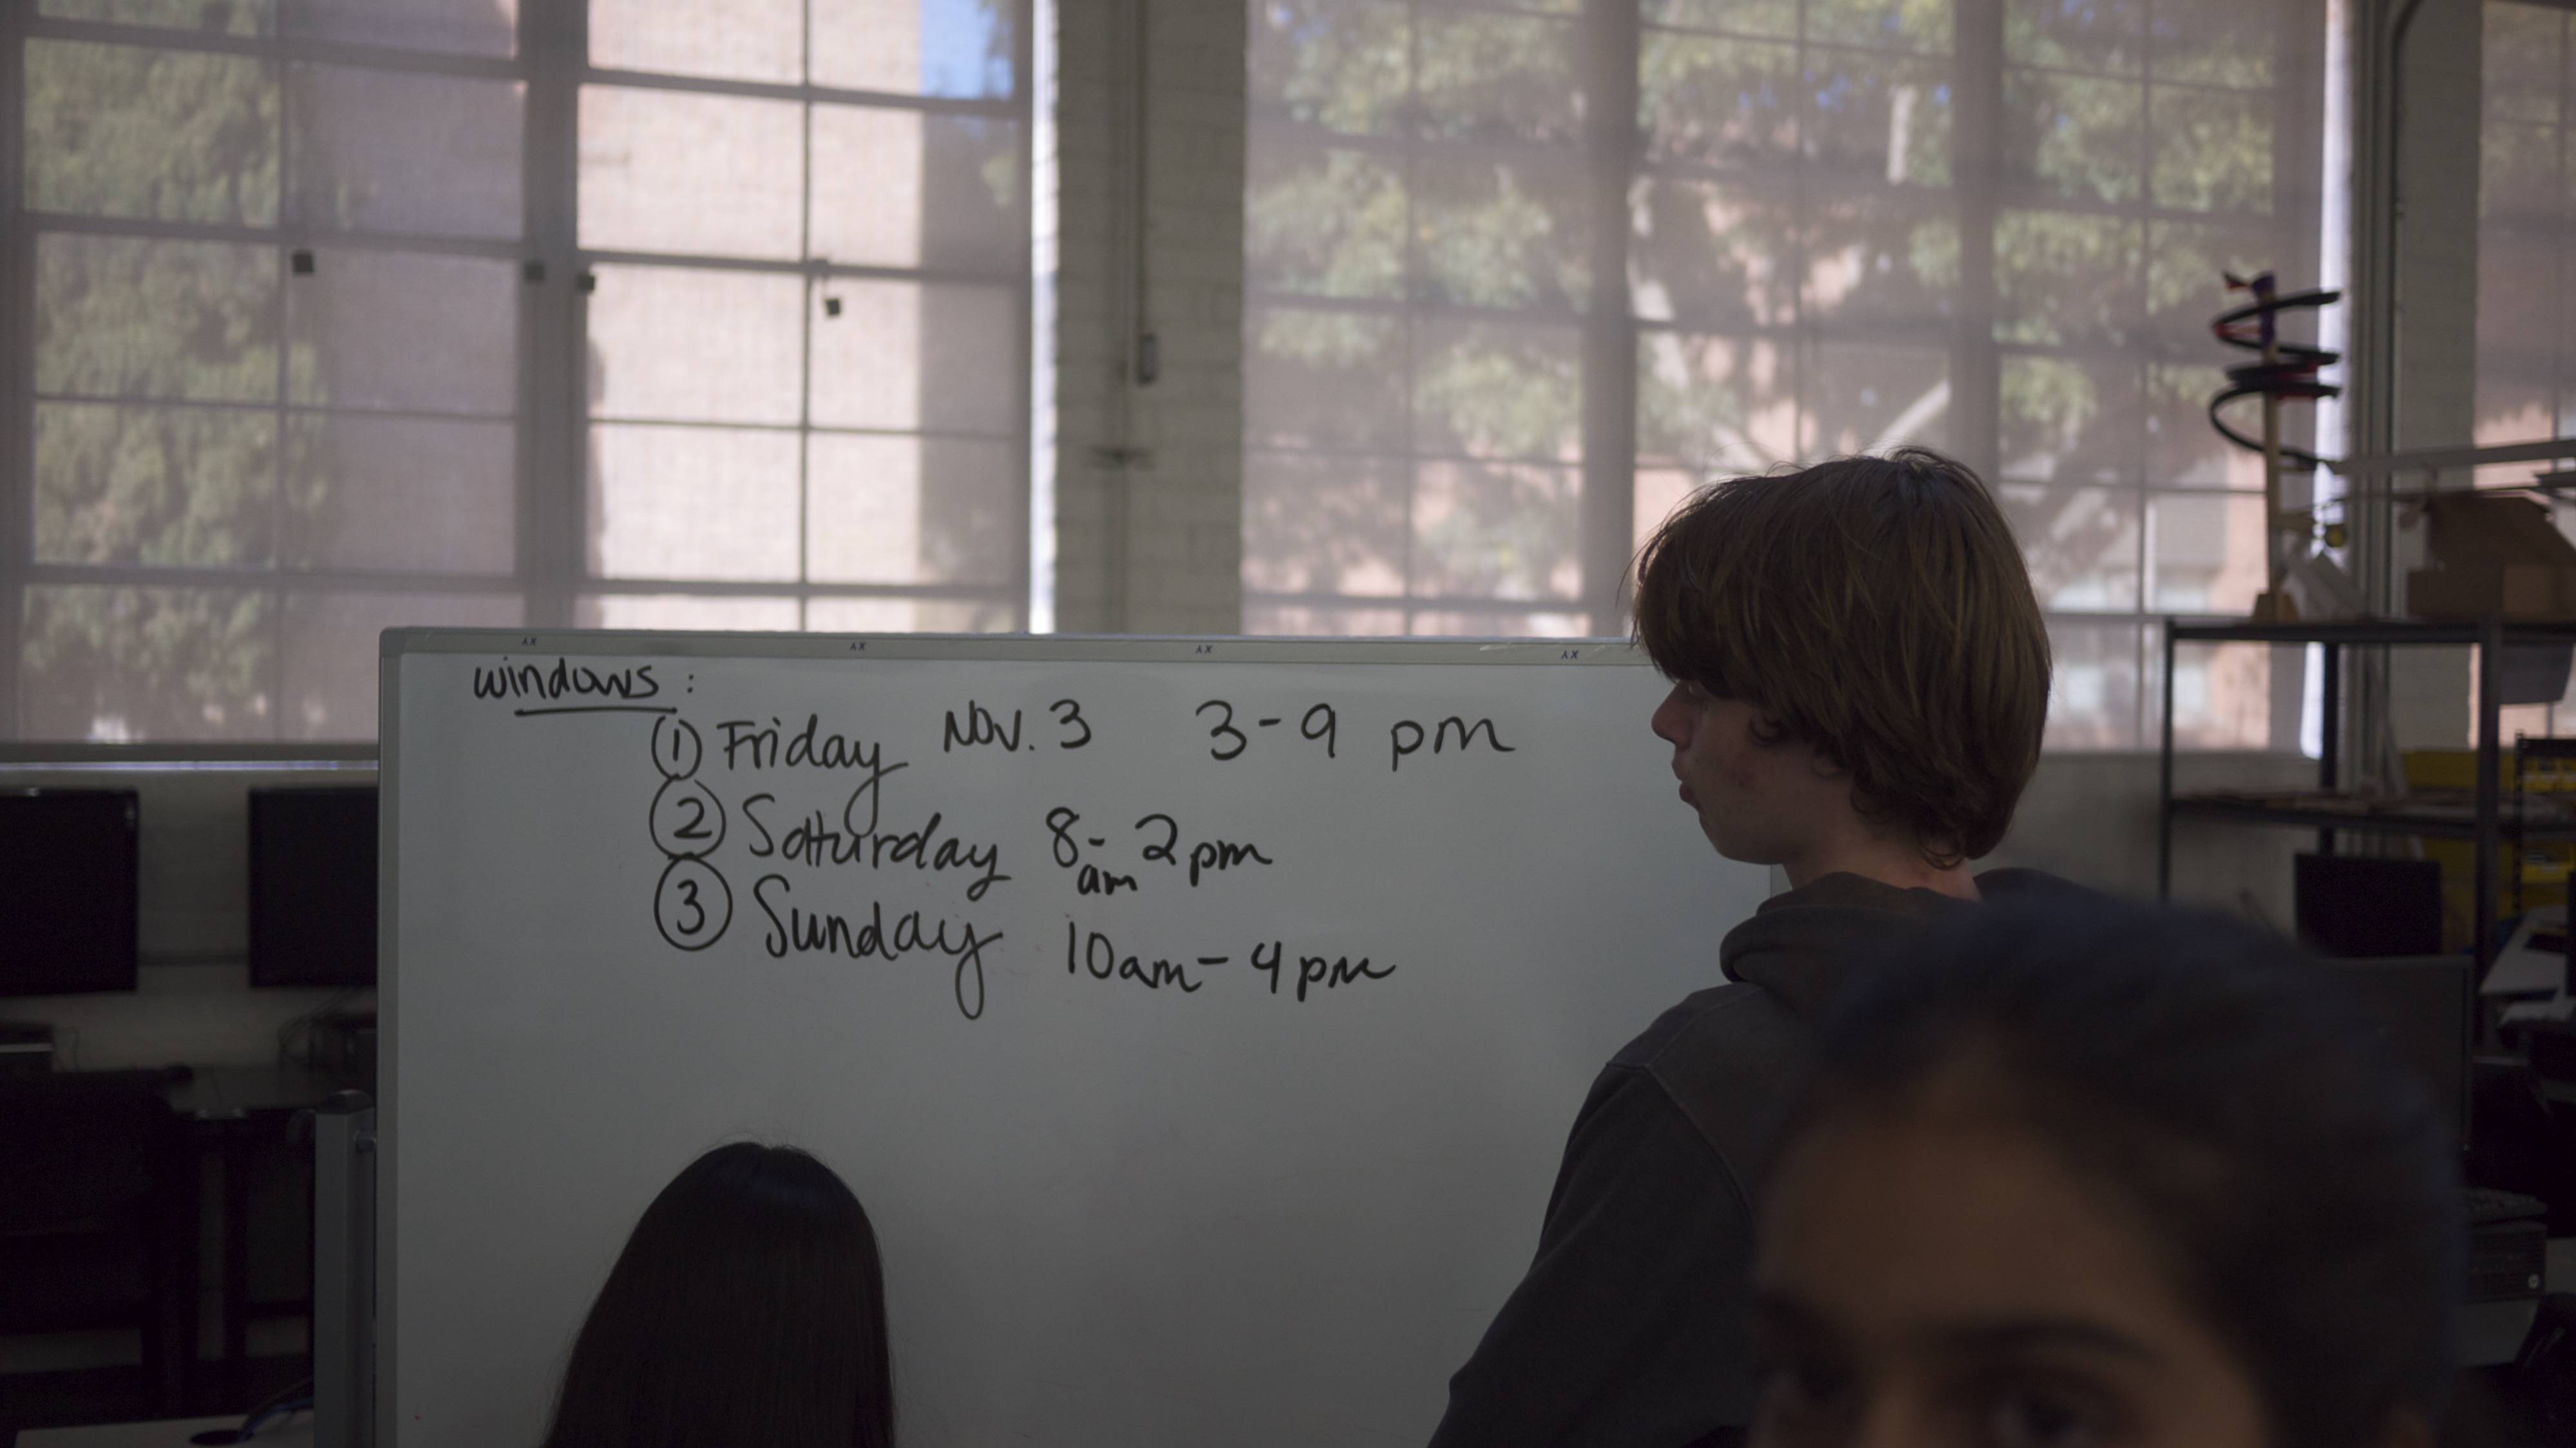 windows :
① Friday Nov. 3 3-9 pm
② Saturday 8am-2pm
③ Sunday 10am-4pm